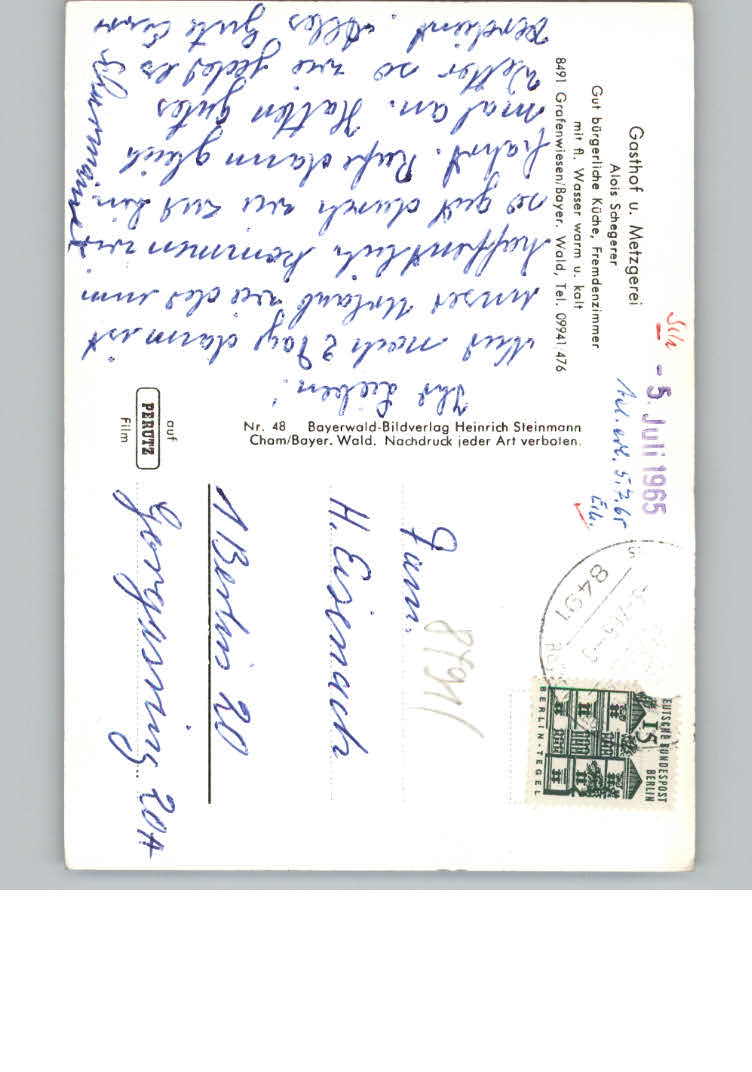 Gasthof u. Metzgerei
Alois Schegerer
Gut bürgerliche Küche, Fremdenzimmer
mit fl. Wasser warm u. kalt
8491 Grafenwiesen/Bayer. Wald, Tel. 09941/476
Ihr Lieben!
Nur noch 2 Tage dann ist
unser Urlaub wieder um
hoffentlich kommen wir
so gut durch wie zur Hin
fahrt. Rufe dann gleich
mal an. Hatten gutes
Wetter so wie jeder es
verdient. Alles Gute Eure
Nr. 48 Bayerwald-Bildverlag Heinrich Steinmann
Cham/Bayer. Wald. Nachdruck jeder Art verboten.
auf
PERUTZ
Film
- 5. Juli 1965
5.7.65
8491
DEUTSCHE BUNDESPOST
BERLIN
15
BERLIN-TEGEL
8491
Fam.
H. Eisenach
1 Berlin 20
Gorgasring 20A